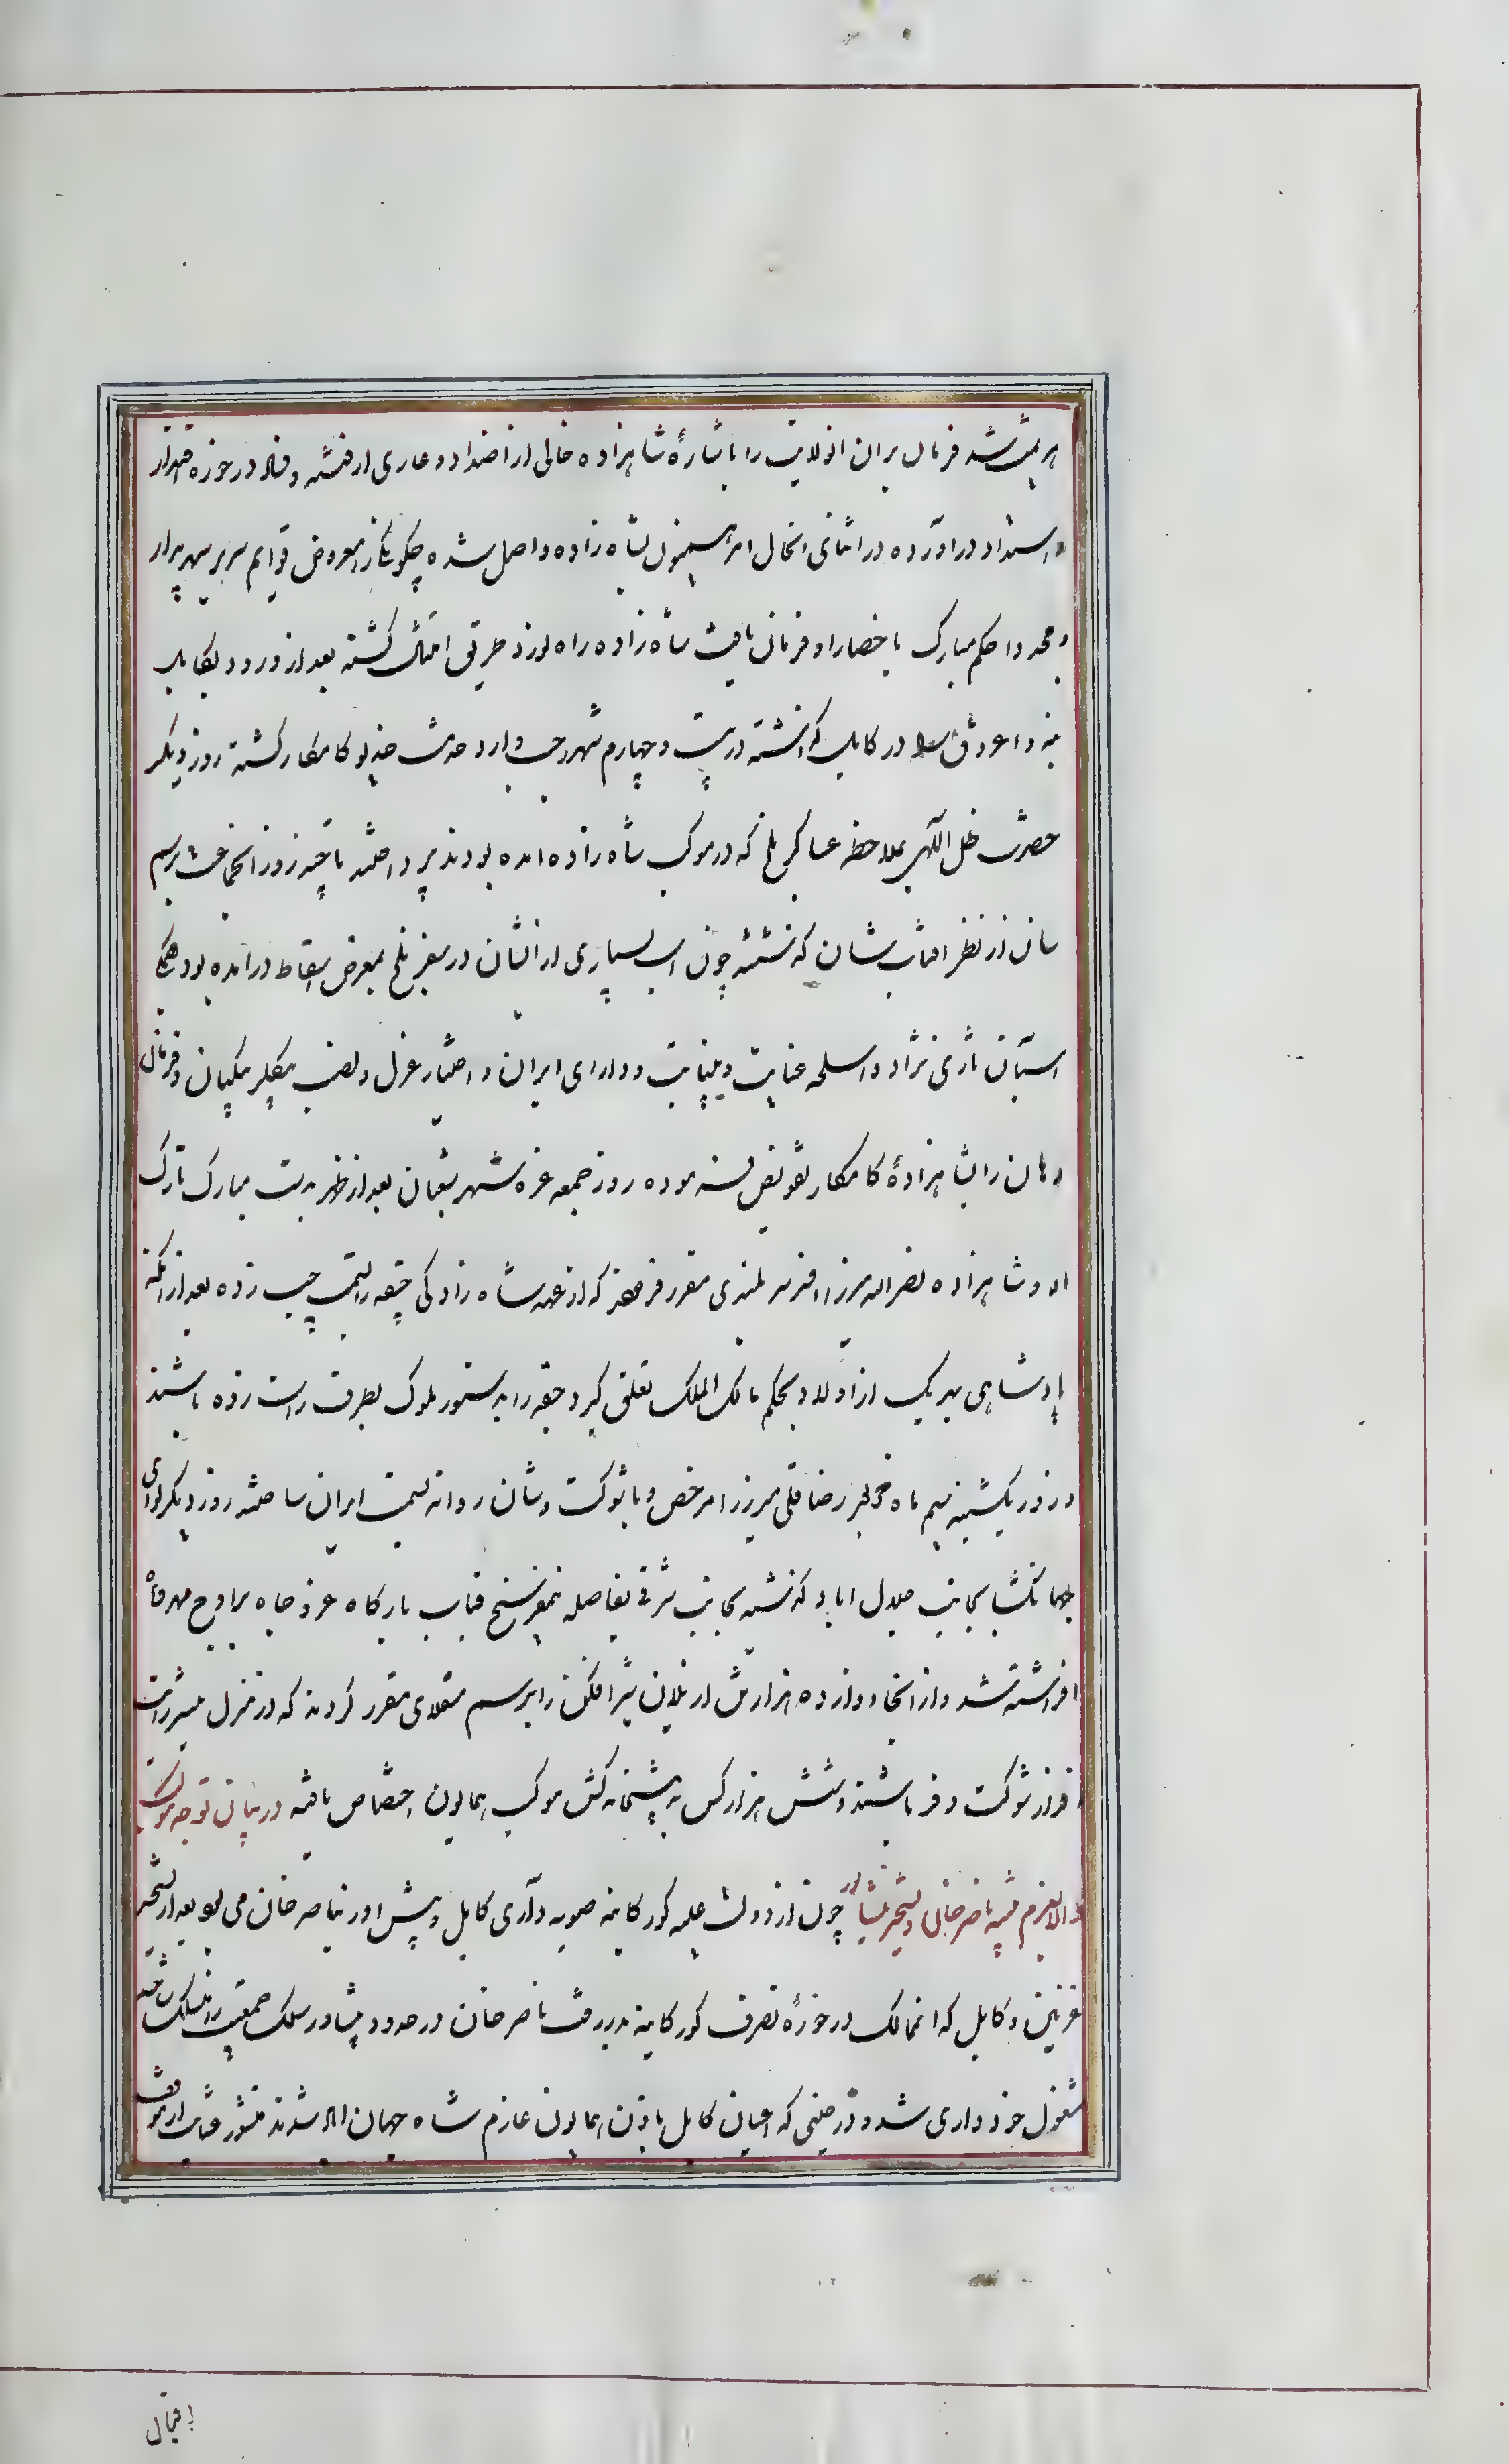 هزیمت شد فرمان بران انولایت را باشارهٔ شاهزاده خالی از اضداد و عاری از فتنه و فساد در حوزه اقتدار
و استبداد در آورده در اثنای انحال امر همیون بشاه زاده واصل شده چگونگی را معروض قوایم سریر سپهر مدار
و مجددا حکم مبارک باحضار او فرمان یافت شاه زاده راه نورد طریق امتثال گشته بعد از ورود بکابل
بنه و اغروق را در کابل گذاشته در بیست و چهارم شهر رجب وارد خدمت خدیو کامکار گشته روز دیکر
حضرت ظل اللهی بملاحظه عساکر بلخ که در موکب شاه زاده امده بودند پرداخته تا چند روز انجماعت برسم
سان از نظر افتاب نشان گذشته چون اسب بسیاری از انشان در سفر بلخ بمعرض اسقاط در آمده بود همگی
اسبان تازی نژاد و اسلحه عنایت و نیابت و دارای ایران و اختیار عزل و نصب بیگلر بیگیان و فرمان
دهان را بشاهزادهٔ کامکار تفویض فرموده روز جمعه غره شهر شعبان بعد از ظهر بدست مبارک تارک
او و شاهزاده نصرالله میرزا را افسر سر بلندی مقرر فرمودند که از عهد شاه زادگی جقه را بسمت چپ زده بعد از انکه
پادشاهی بهر یک از اولاد بحکم مالک الملک تعلق گیرد جقه را بدستور ملوک بطرف راست زده باشند
در روز یکشنبه سیم ماه مزبور رضا قلی میرزا مرخص و با شوکت و شان روانه بسمت ایران ساخته روز دیکر لوای
جهانکشا بجانب جلال اباد گذشته بجانب شرقی بفاصله نیمفرسنخ قباب بارکاه عز و جاه بر اوج مهر و ماه
افراشته شد و از انجا دوازده هزار تن از یلان شیر افکن را برسم منقلای مقرر کردند که در منزل پیشتر رایت
افراز شوکت و فر باشند و شش هزار کس به پیشخانه کش موکب همایون اختصاص یافته در بیان توجه موکب
والا بعزم تنبیه ناصر خان و تسخیر پیشاور چون از دولت علیه کورکانیه صوبه داری کابل و پیشاور بناصر خان می بود بعد از تسخیر
غزنین و کابل که انممالک در حوزهٔ تصرف کورکانیه بدر رفت ناصر خان در حدود پیشاور سلک جمعیت را منسلک ساخته
مشغول خودداری شد و در حینی که اعیان کابل باذن همایون عازم شاه جهان اباد شدند منشور عنایت از موقف
اقبال